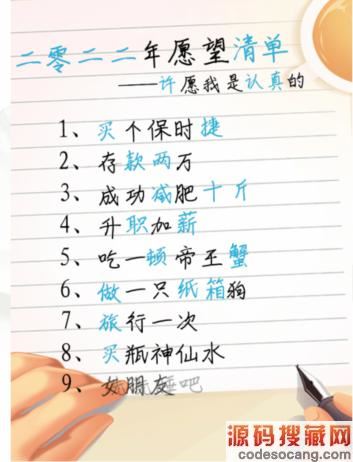 二零二二年愿望清单
——许愿我是认真的
1、买个保时捷
2、存款两万
3、成功减肥十斤
4、升职加薪
5、吃一顿帝王蟹
6、做一只纸箱狗
7、旅行一次
8、买瓶神仙水
9、女朋友吧
源码搜藏网
codesocang.com